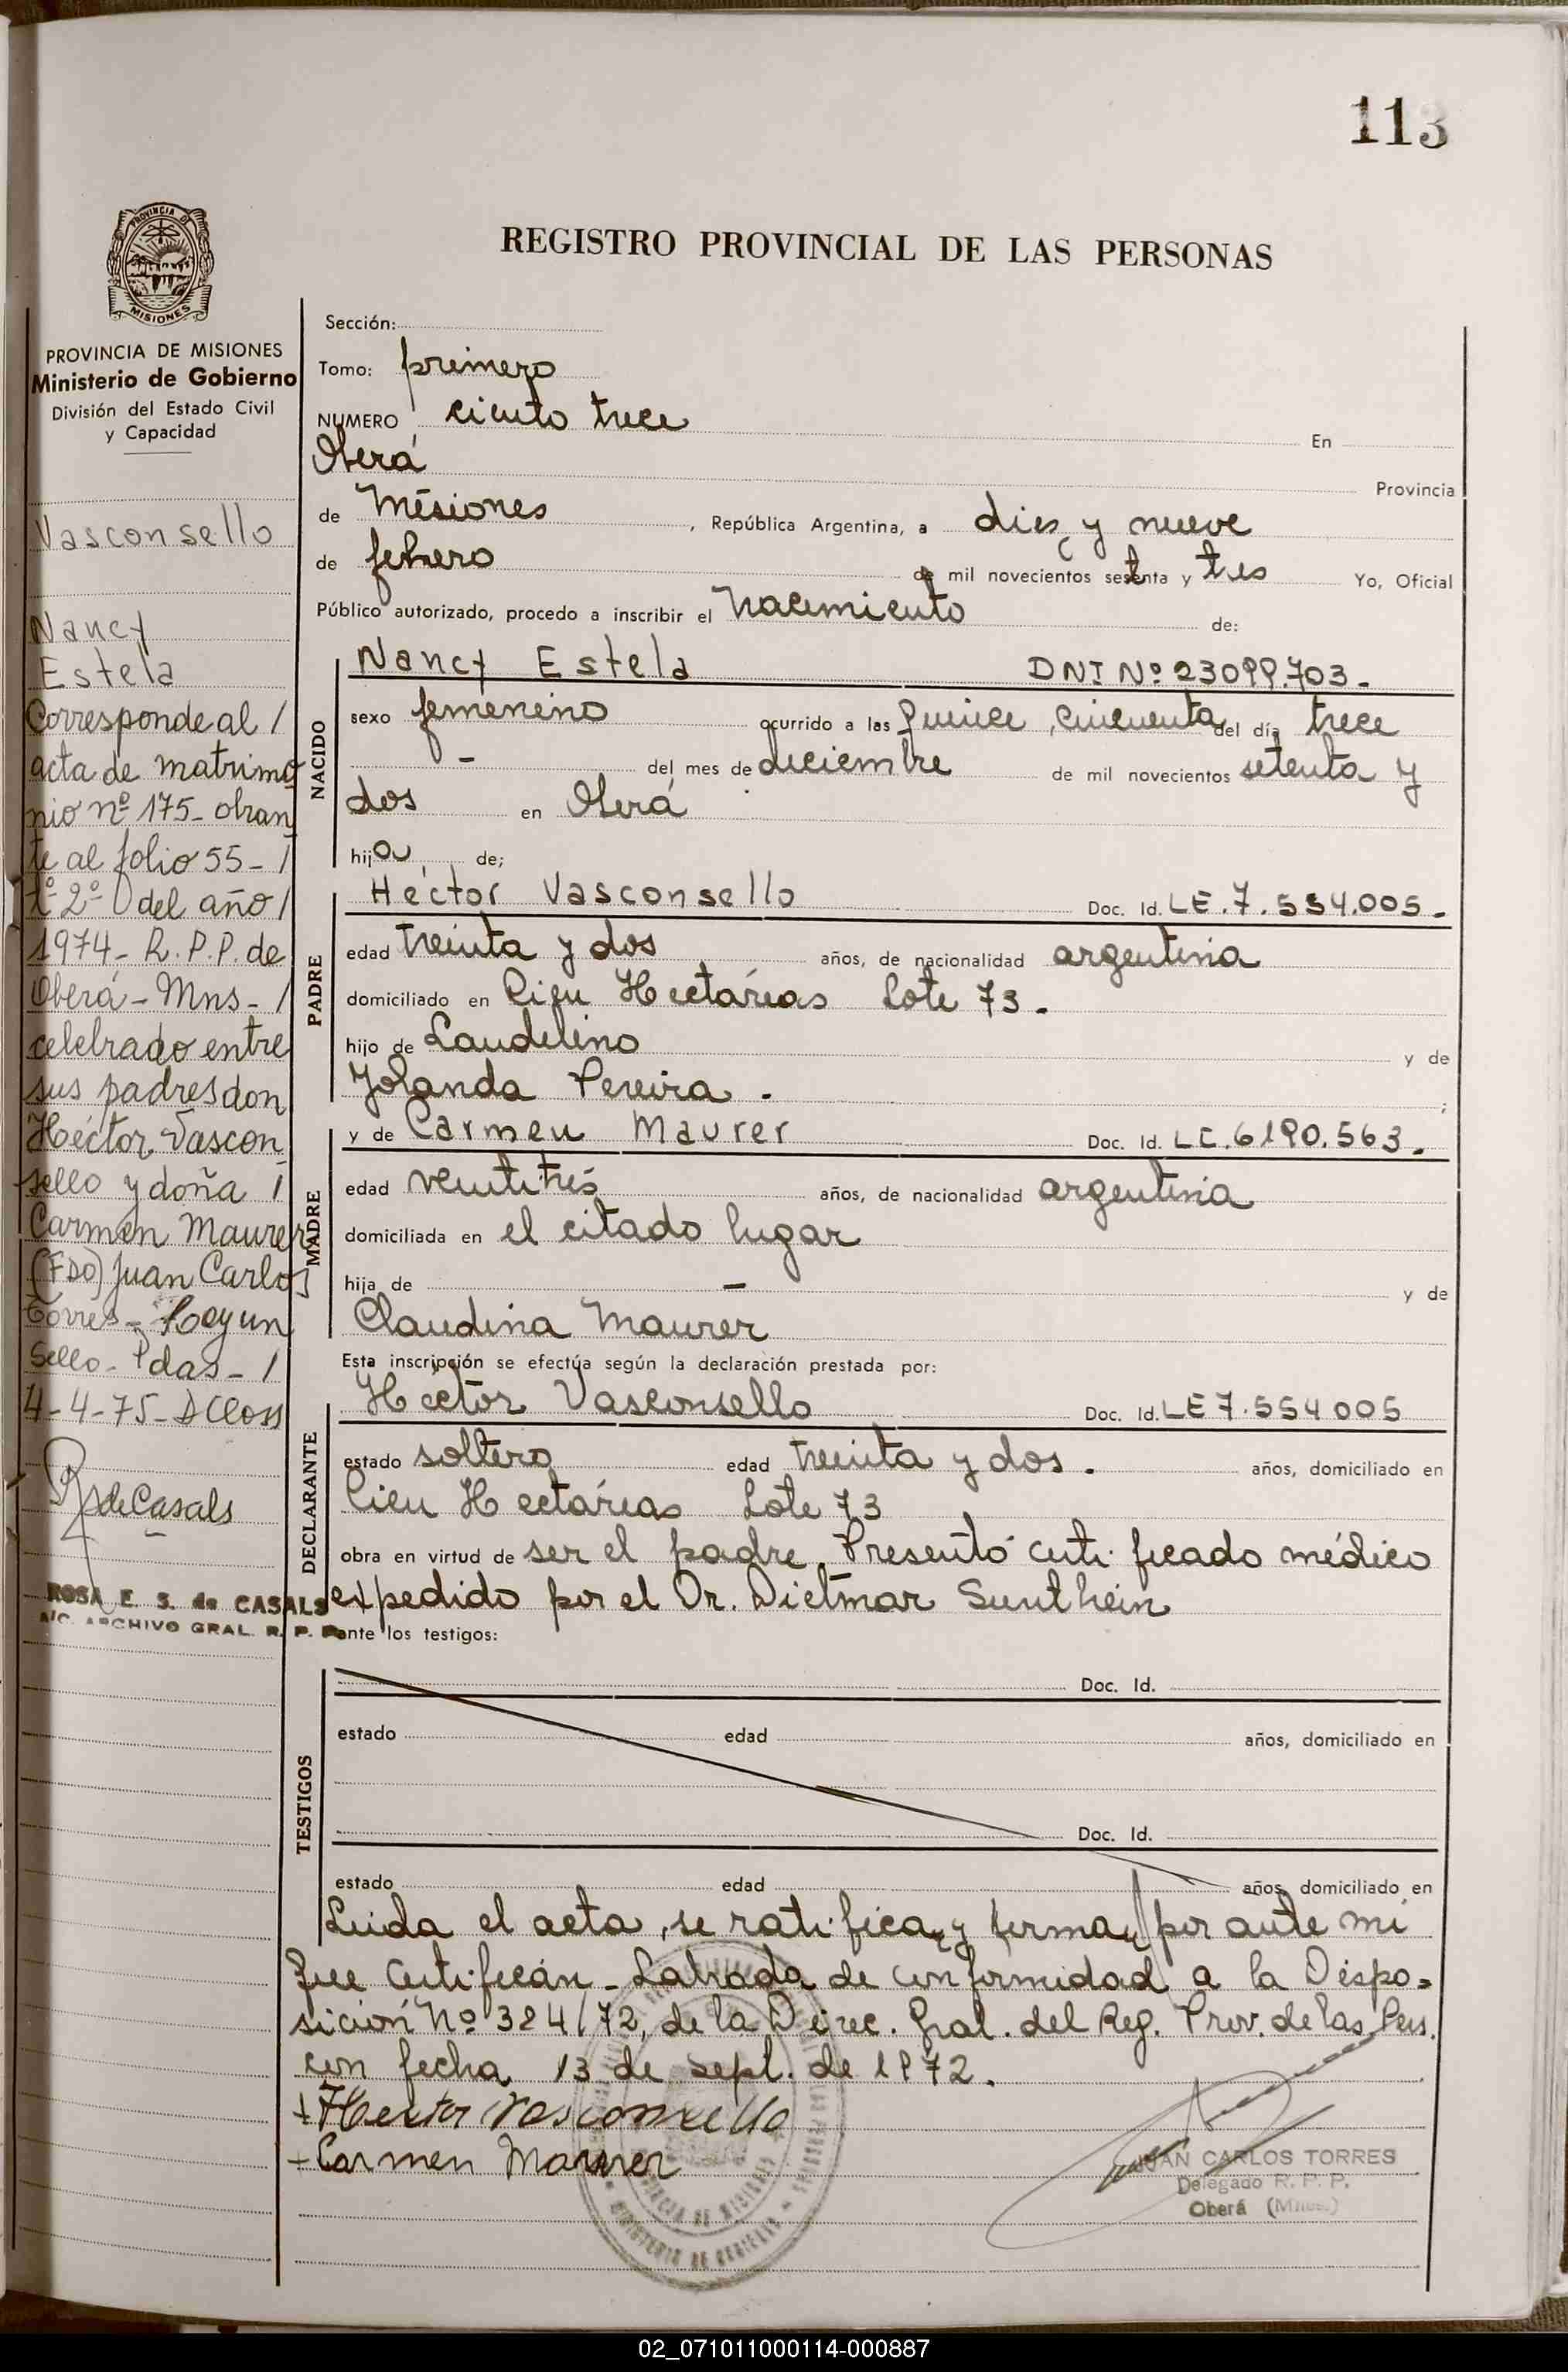 113
PROVINCIA DE
MISIONES
REGISTRO PROVINCIAL DE LAS PERSONAS
PROVINCIA DE MISIONES
Ministerio de Gobierno
División del Estado Civil
y Capacidad
Vasconsello
Nancy
Estela
Corresponde al /
acta de matrimo
nio nº 175- obran
te al folio 55- /
tº 2º del año /
1974- R.P.P. de
Oberá - Mns - /
celebrado entre
sus padres don
Héctor Vascon
sello y doña /
Carmen Maurer
(FDO) Juan Carlos
Torres - Hay un
Sello - Pdas - /
4-4-75-
RsdeCasals
ROSA E. S. de CASALS
A/C. ARCHIVO GRAL. R. P. P.
Sección:
Tomo: primero
NUMERO ciento trece En
Oberá Provincia
de Misiones , República Argentina, a diez y nueve
de febrero de mil novecientos setenta y tres Yo, Oficial
Público autorizado, procedo a inscribir el nacimiento de:
NACIDO
Nancy Estela DNI Nº 23099.703-
sexo femenino ocurrido a las quince, cincuenta del día trece
- del mes de diciembre de mil novecientos setenta y
dos en Oberá
hija de;
PADRE
Héctor Vasconsello Doc. Id. LE.7.554.005-
edad treinta y dos años, de nacionalidad argentina
domiciliado en Cien Hectáreas Lote 73-
hijo de Laudelino y de
Yolanda Pereira - ;
MADRE
y de Carmen Maurer Doc. Id. LC.6190.563-
edad veintitrés años, de nacionalidad argentina
domiciliada en el citado lugar
hija de — y de
Claudina Maurer
Esta inscripción se efectúa según la declaración prestada por:
DECLARANTE
Héctor Vasconsello Doc. Id. LE 7.554005
estado soltero edad treinta y dos. años, domiciliado en
Cien Hectáreas Lote 73
obra en virtud de ser el padre. Presentó certificado médico
expedido por el Dr. Dietmar Sunthein
ante los testigos:
TESTIGOS
Doc. Id.
estado edad años, domiciliado en
Doc. Id.
estado edad años, domiciliado en
Leida el acta, se ratifican y firman por ante mí
que certifican - Labrada de conformidad a la Dispo=
sición Nº 324/72, de la Direc. Gral. del Reg. Prov. de las Pers.
con fecha 13 de sept. de 1972.
+Hector Vasconsello
-Carmen Maurer
JUAN CARLOS TORRES
Delegado R. P. P.
Oberá (Mnes.)
02_071011000114-000887